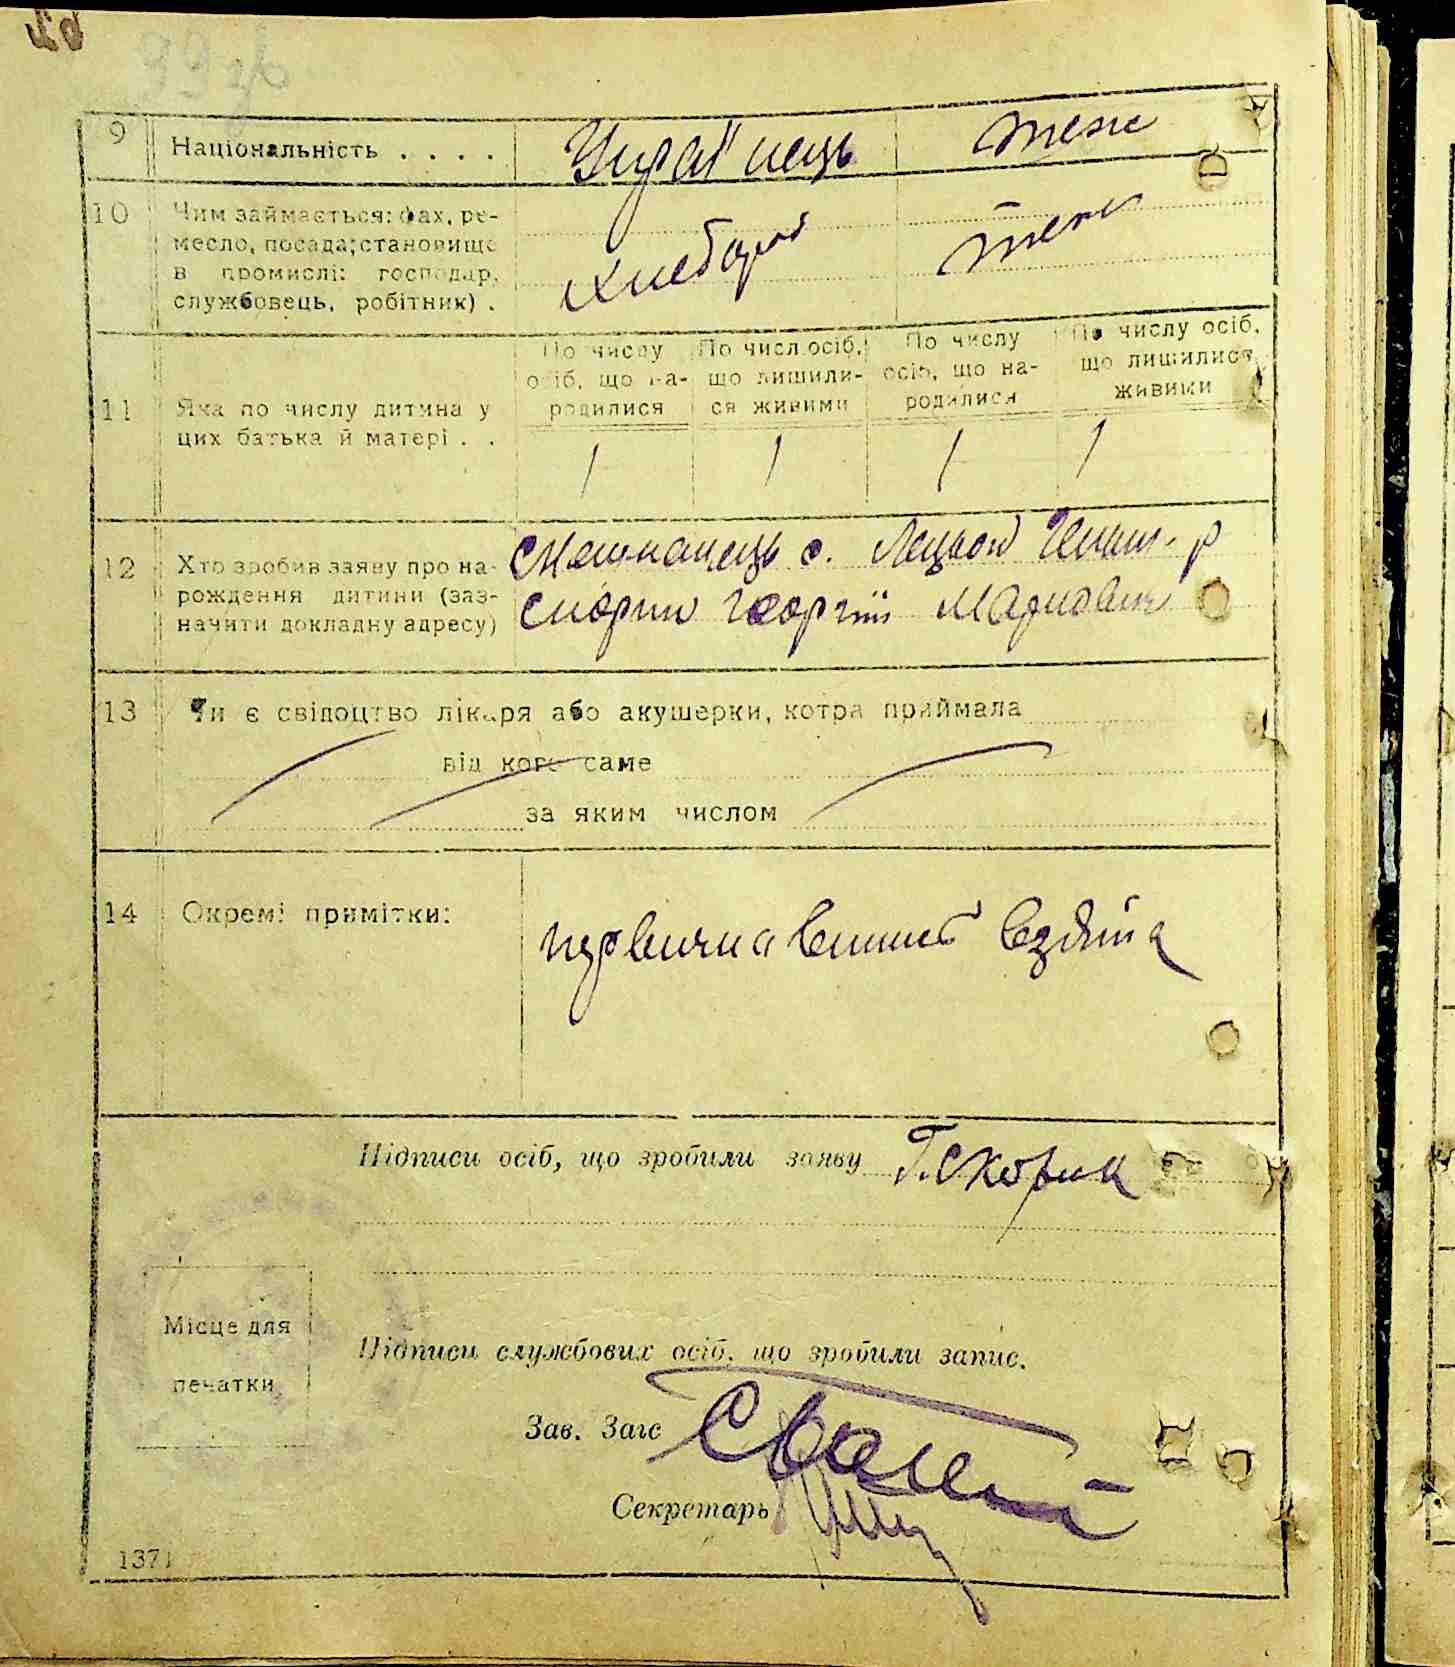 9 Національність . . . . Украї нець теж
10 Чим займається: фах, ре-
месло, посада; становище
в промислі: господар,
службовець, робітник) .
хлебороб теж
По числу осіб, що на-родилися
По числ осіб, що лишили-ся живими
По числу осіб, що на-родилися
По числу осіб, що лишилися живими
11 Яка по числу дитина у
цих батька й матері . .
1 1 1 1
12 Хто зробив заяву про на-
рождення дитини (заз-
начити докладну адресу)
с.
Скорик Георгій
13 Чи є свідоцтво лікаря або акушерки, котра приймала
від кого саме
за яким числом
14 Окремі примітки:
первична
Підписи осіб, що зробили заяву Г. Скорик
Місце для
печатки
Підписи службових осіб, що зробили запис.
Зав. Загс
Секретарь
1371